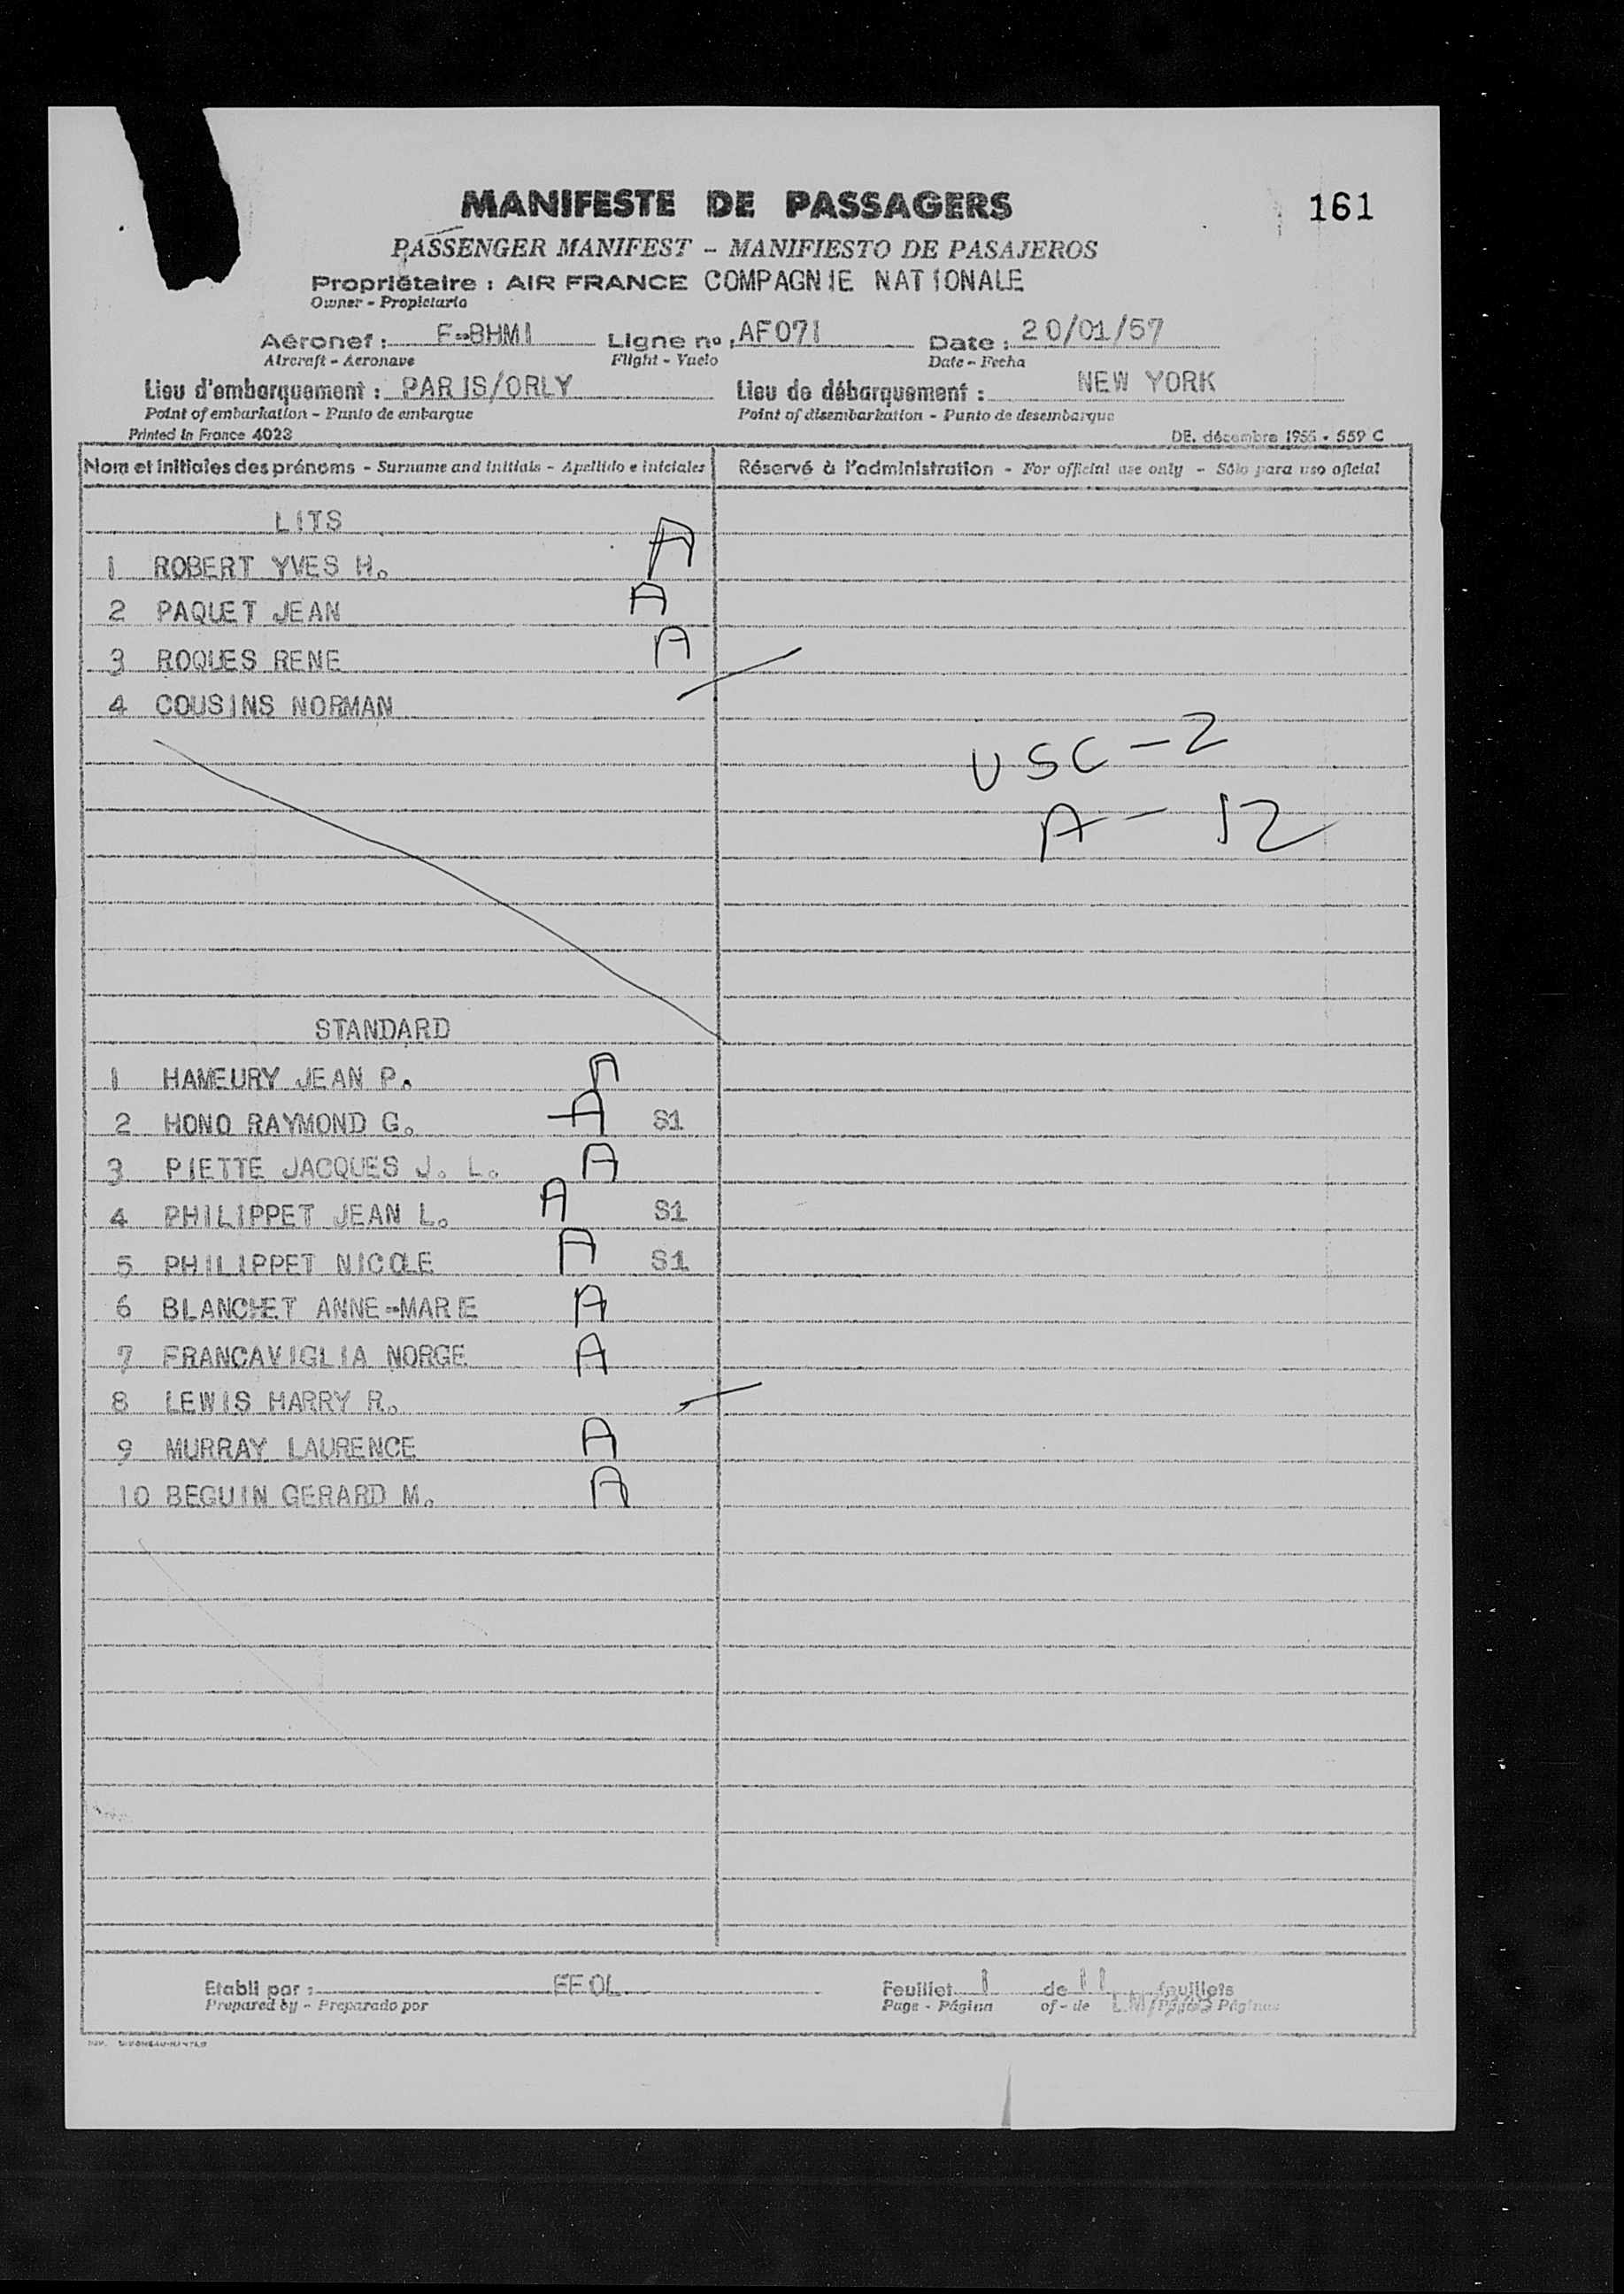 161
MANIFESTE DE PASSAGERS
PASSENGER MANIFEST - MANIFIESTO DE PASAJEROS
Propriétaire : AIR FRANCE COMPAGNIE NATIONALE
Owner - Propietario
Aéronef : F-BHMI Ligne no : AF071 Date : 20/01/57
Aircraft - Aeronave Flight - Vuelo Date - Fecha
Lieu d'embarquement : PARIS/ORLY Lieu de débarquement : NEW YORK
Point of embarkation - Punto de embarque Point of disembarkation - Punto de desembarque
Printed in France 4023 DE. décembre 1955 - 559 C
Nom et initiales des prénoms - Surname and initials - Apellido e iniciales Réservé à l'administration - For official use only - Sólo para uso oficial
LITS
1 ROBERT YVES H. A
2 PAQUET JEAN A
3 ROQUES RENE A
4 COUSINS NORMAN
USC - 2
A - 12
STANDARD
1 HAMEURY JEAN P. A
2 HONO RAYMOND G. A S1
3 PIETTE JACQUES J. L. A
4 PHILIPPET JEAN L. A S1
5 PHILIPPET NICOLE A S1
6 BLANCHET ANNE-MARIE A
7 FRANCAVIGLIA NORGE A
8 LEWIS HARRY R.
9 MURRAY LAURENCE A
10 BEGUIN GERARD M. A
Etabli par : EFOL Feuillet 1 de 11 feuillets
Prepared by - Preparado por Page - Página of - de